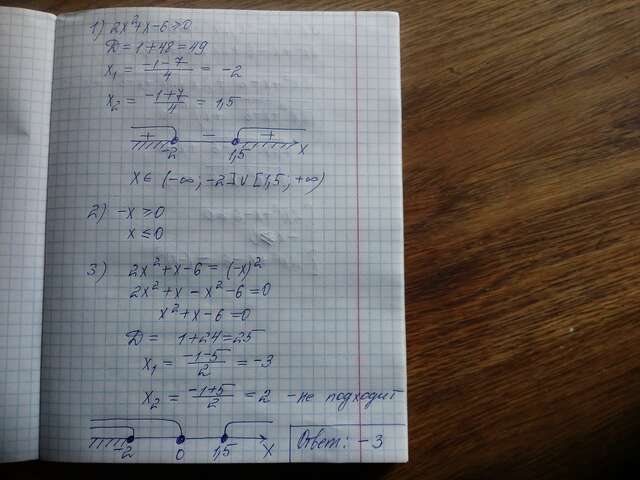 1) 2x²+x-6≥0
D=1+48=49
x₁ = (-1-7)/4 = -2
x₂ = (-1+7)/4 = 1,5
+ - +
-2 1,5 x
x∈ (-∞; -2]∪[1,5; +∞)
2) -x≥0
x≤0
3) 2x²+x-6=(-x)²
2x²+x-x²-6=0
x²+x-6=0
D= 1+24=25
x₁ = (-1-5)/2 = -3
x₂ = (-1+5)/2 = 2 -не подходит
-2 0 1,5 x
Ответ: -3